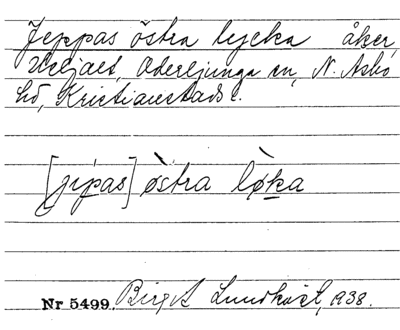 Jeppas östra lycka åker,
Oderljunga sn, N. Åsbo
hd, Kristianstads l.
[jipas] östra lø̀ka
Nr 5499. Birgit Lundkvist, 1938.